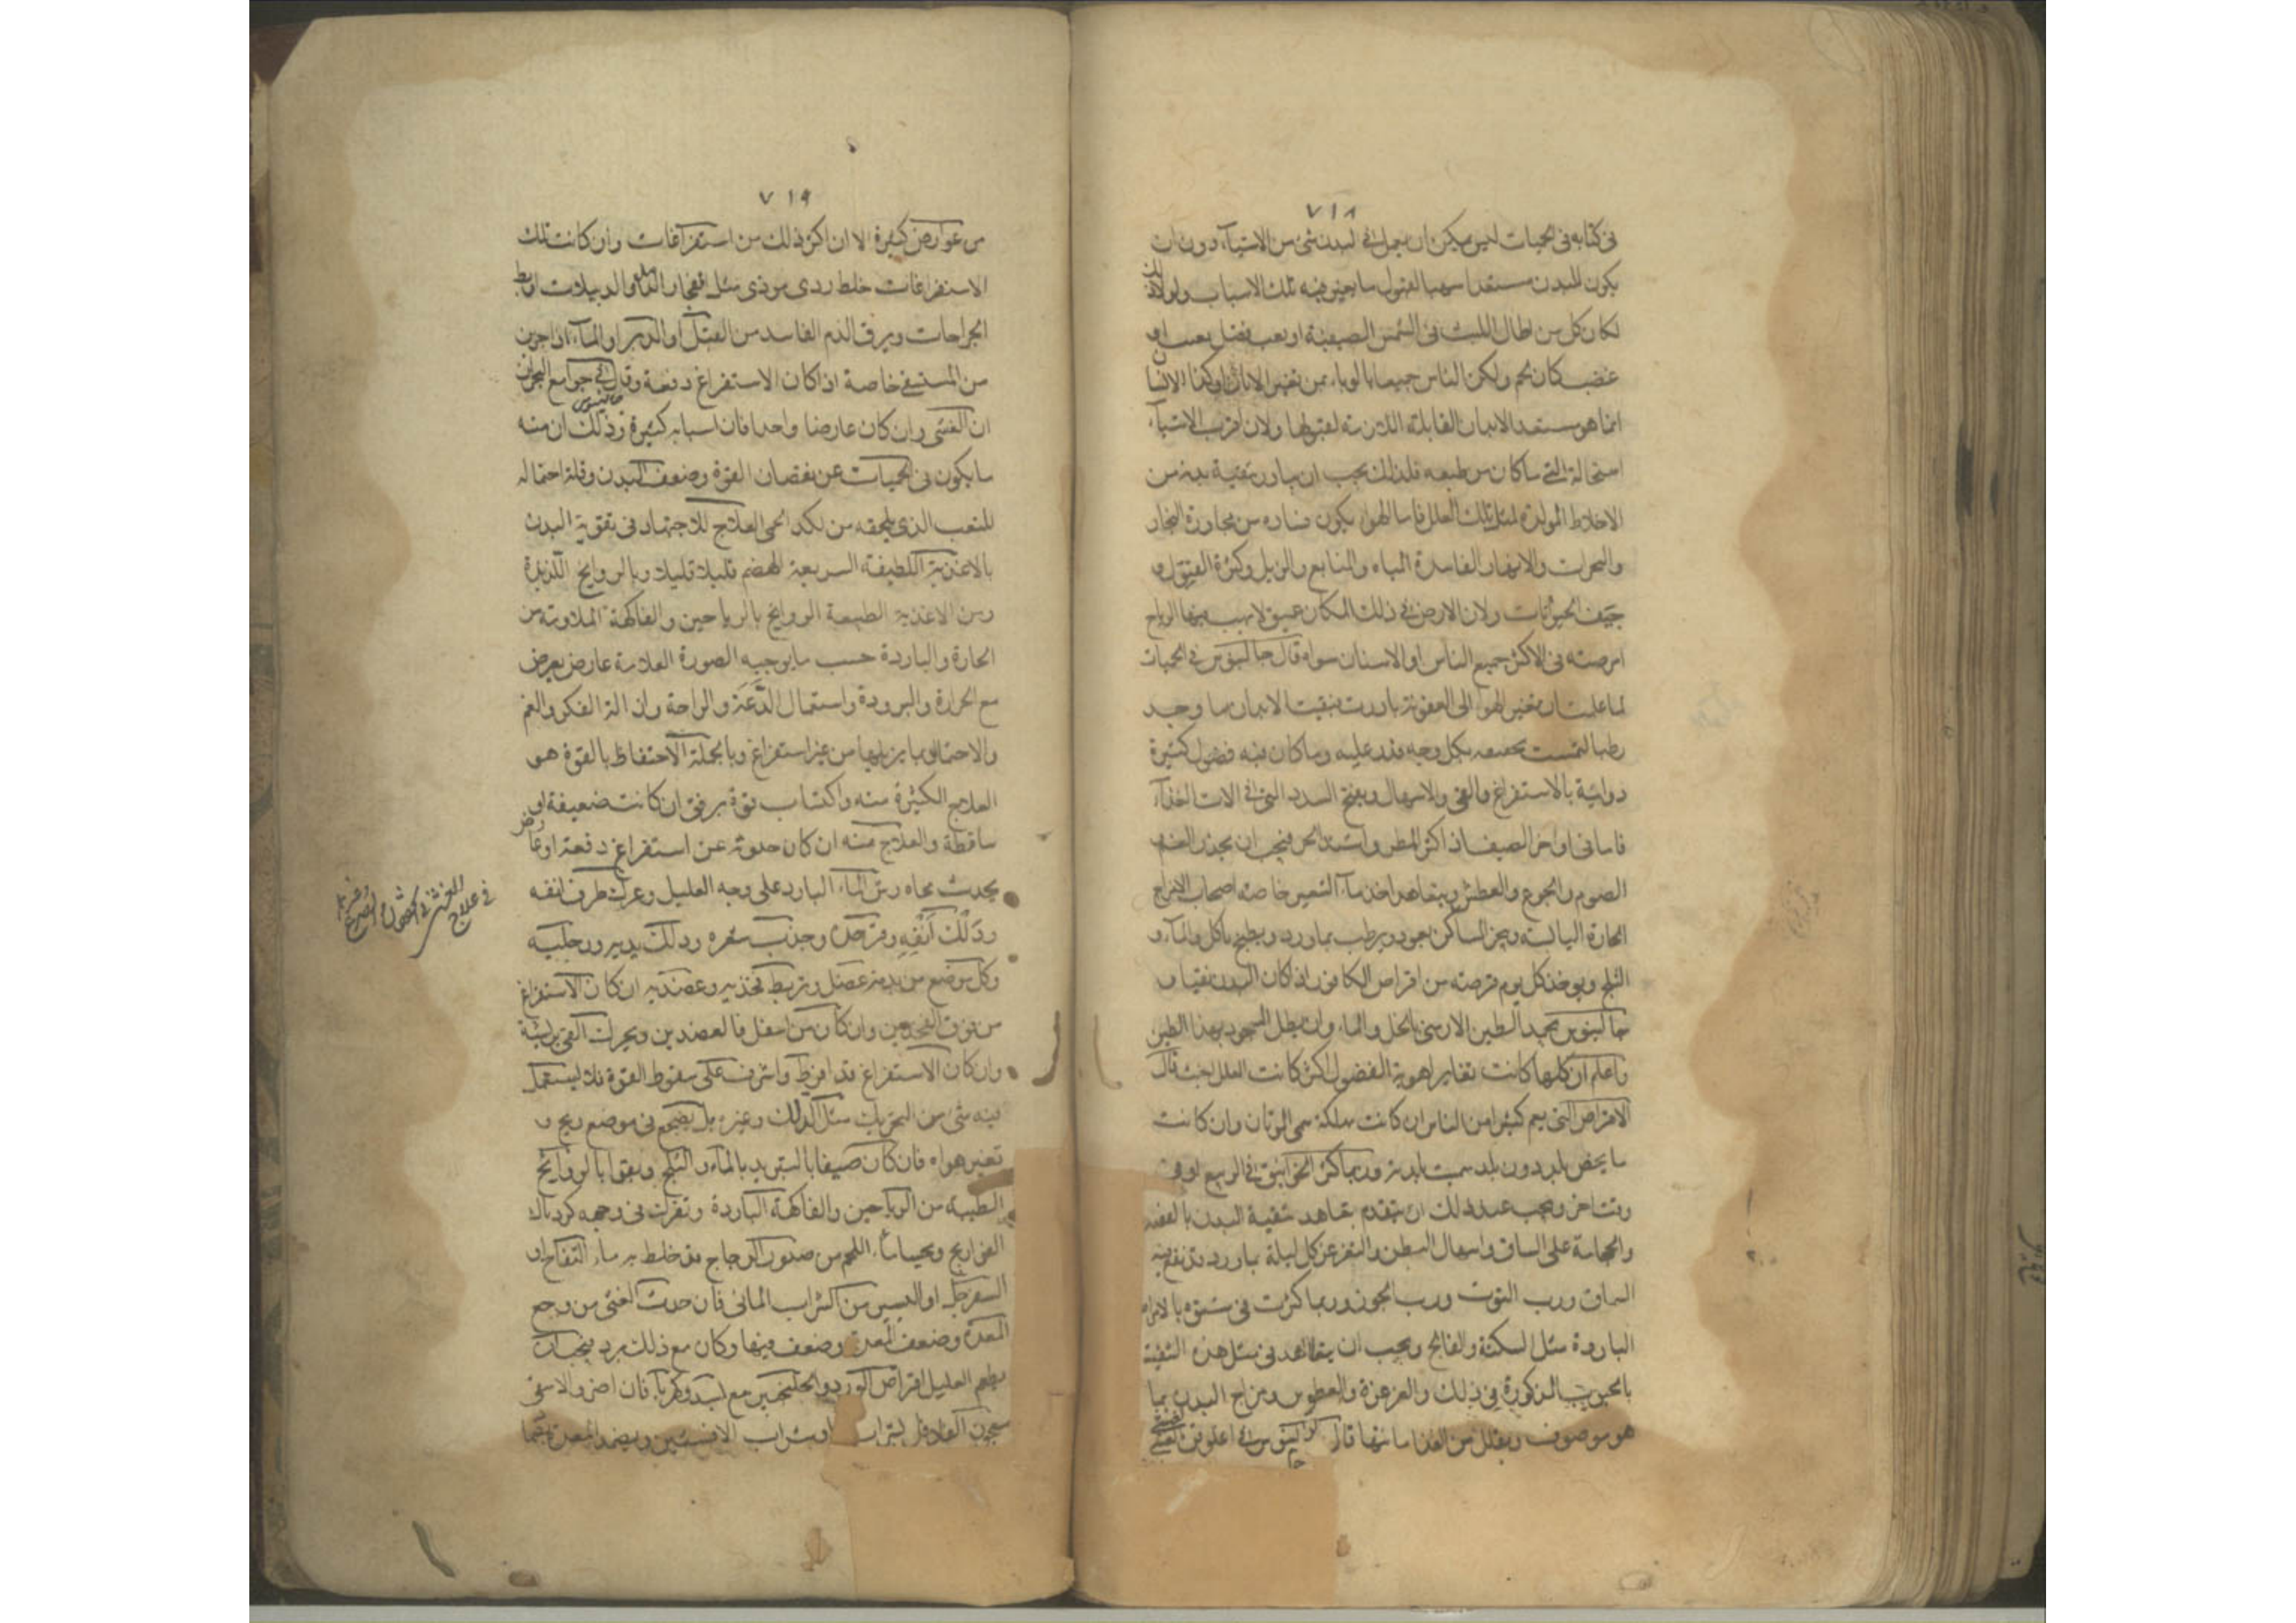 ٧١٨
فى كتابه فى الحميات ليس يمكن ان يعمل فى البدن شئ من الاشياء دون ان
يكون للبدن مستعدا مهيا لقبول ما يعرض فيه تلك الاسباب ولولا ذلك
لكان كل من اطال اللبث فى الشمس الصيفية او تعب فضل تعب او
غضب كان يحم ولكن الناس جميعا بالوباء
انما هو مستعد الابدان القابلة لقبولها ولان اقرب الاشياء
استحالة الى ما كان من طبعه فلذلك يجب ان يبادر بتنقية بدنه من
الاخلاط المولدة لمثل تلك العلل فاما الهواء يكون فساده من مجاورة البخار
والبحرات والانهار الفاسدة المياه والمنابع والزبل وكثرة البقول و
جيف الحيوانات ولان الارض فى ذلك المكان عميق لا يهب فيها الرياح
امرضته فى الاكثر جميع الناس او الاسنان سواء قال جالينوس فى الحميات
لما علمت ان تغير الهواء الى العفونة بادرت بتنقيت الابدان ما وجد
رطبا التمست تجفيفه بكل وجه قدر عليه وما كان فيه فضول كثيرة
دوائية بالاستفراغ والقى والاسهال وبفتح السدد التى فى الات الغذاء
فاما فى اواخر الصيف اذ اكثر المطر واشتد الحر فيجب ان يحذر
الصوم والجوع والعطش ويتعاهد اخذ ماء الشعير خاصة اصحاب المزاج
الحارة اليابسة
الثلج ويوخذ كل يوم قرصة من اقراص الكافور اذا كان البدن نقيا و
جالينوس يحمد الطين الارمنى بالخل والماء وان يطل بهذا الطين
واعلم ان كلها كانت تغاير اهوية الفصول اكثر كانت العلل اخبث قال
الامراض التى يعم كثيرا من الناس ان كانت مهلكة سمى الموتان وان كانت
ما يخص بلد دون بلد سميت بلدية وربما كثر الخوانيق فى الربيع او فى
وقت اخر ويجب عند ذلك ان يتقدم بتعاهد تنقية البدن بالفصد
والحجامة على الساق واسهال البطن والتغرغر كل ليلة بماورد قد نقع فيه
السماق ورب التوت ورب الجوز وربما كثرت فى شتوه بالامراض
الباردة مثل السكتة والفالج ويجب ان يتعاهد فى مثل هذه التنقية
بالحبوب المذكورة فى ذلك والغرغرة والعطوس ومزاج البدن بما
هو موصوف ويقلل من الغذا قال جالينوس فى اغلوقن الغشى
٧١٩
من عوارض كثيرة الا ان اكثر ذلك من استفراغات وان كانت تلك
الاستفراغات خلط ردى موذى مثل انفجار الدماميل والدبيلات او بط
الجراحات وبزق الدم الفاسد من القبل او الدبر او الماء اذا جرى
من المستسقى خاصة اذا كان الاستفراغ دفعة وقال جالينوس فى جوامع البحران
ان الغشى وان كان عارضا واحدا فان اسبابه كثيرة وذلك ان منه
ما يكون فى الحميات عن نقصان القوة وضعف البدن وقلة احتماله
للتعب الذى يلحقه من نكد الحمى العلاج للاجتهاد فى تقوية البدن
بالاغذية اللطيفة السريعة الهضم قليلا قليلا وبالروايح اللذيذة
ومن الاغذية الطيبة الروايح بالرياحين والفاكهة الملاومة من
الحارة والباردة حسب ما يوجبه الصورة العلامة عارض يعرض
مع الحرارة والبرودة واستعمال الدعة والراحة وازالة الفكر والغم
والاحتيال بما يزيلها من غير استفراغ وبالجملة الاحتفاظ بالقوة هو
العلاج الكثيرة منه واكتساب قوة برفق ان كانت ضعيفة او
ساقطة والعلاج منه ان كان حدوثه عن استفراغ دفعة او عارض
يحدث بجاه رش الماء البارد على وجه العليل وعرك طرف انفه
ودلك انفه وفرحله وجذب شعره ودلك يديه ورجليه
وكل موضع من بدنه عضل وتربط فخذيه وعضديه ان كان الاستفراغ
من فوق الفخذين وان كان من اسفل فالعضدين ويحرك القى بريشة
وان كان الاستفراغ قد افرط واشرف على سقوط القوة فلا يستعمل
فيه شئ من التحريك مثل الدلك وغيره بل يضجع فى موضع ريح و
تغير هواه فان كان صيفا بالتبريد بالماء والثلج ويقوا بالروايح
الطيبة من الرياحين والفاكهة الباردة وتقرب فى وجهه كرد ناك
الفراريج ويحسا ماء اللحم من صدور الدجاج قد خلط به ماء التفاح او
السفرجل او اليسير من الشراب المائى فان حدث الغشى من وجع
المعدة وضعف المعدة وضعف فيها وكان مع ذلك برد فيجب ان
يطعم العليل اقراص الورد والجلنجبين مع
معجون الفلافل بشراب او شراب الافسنتين ويضمد المعدة
فى علاج